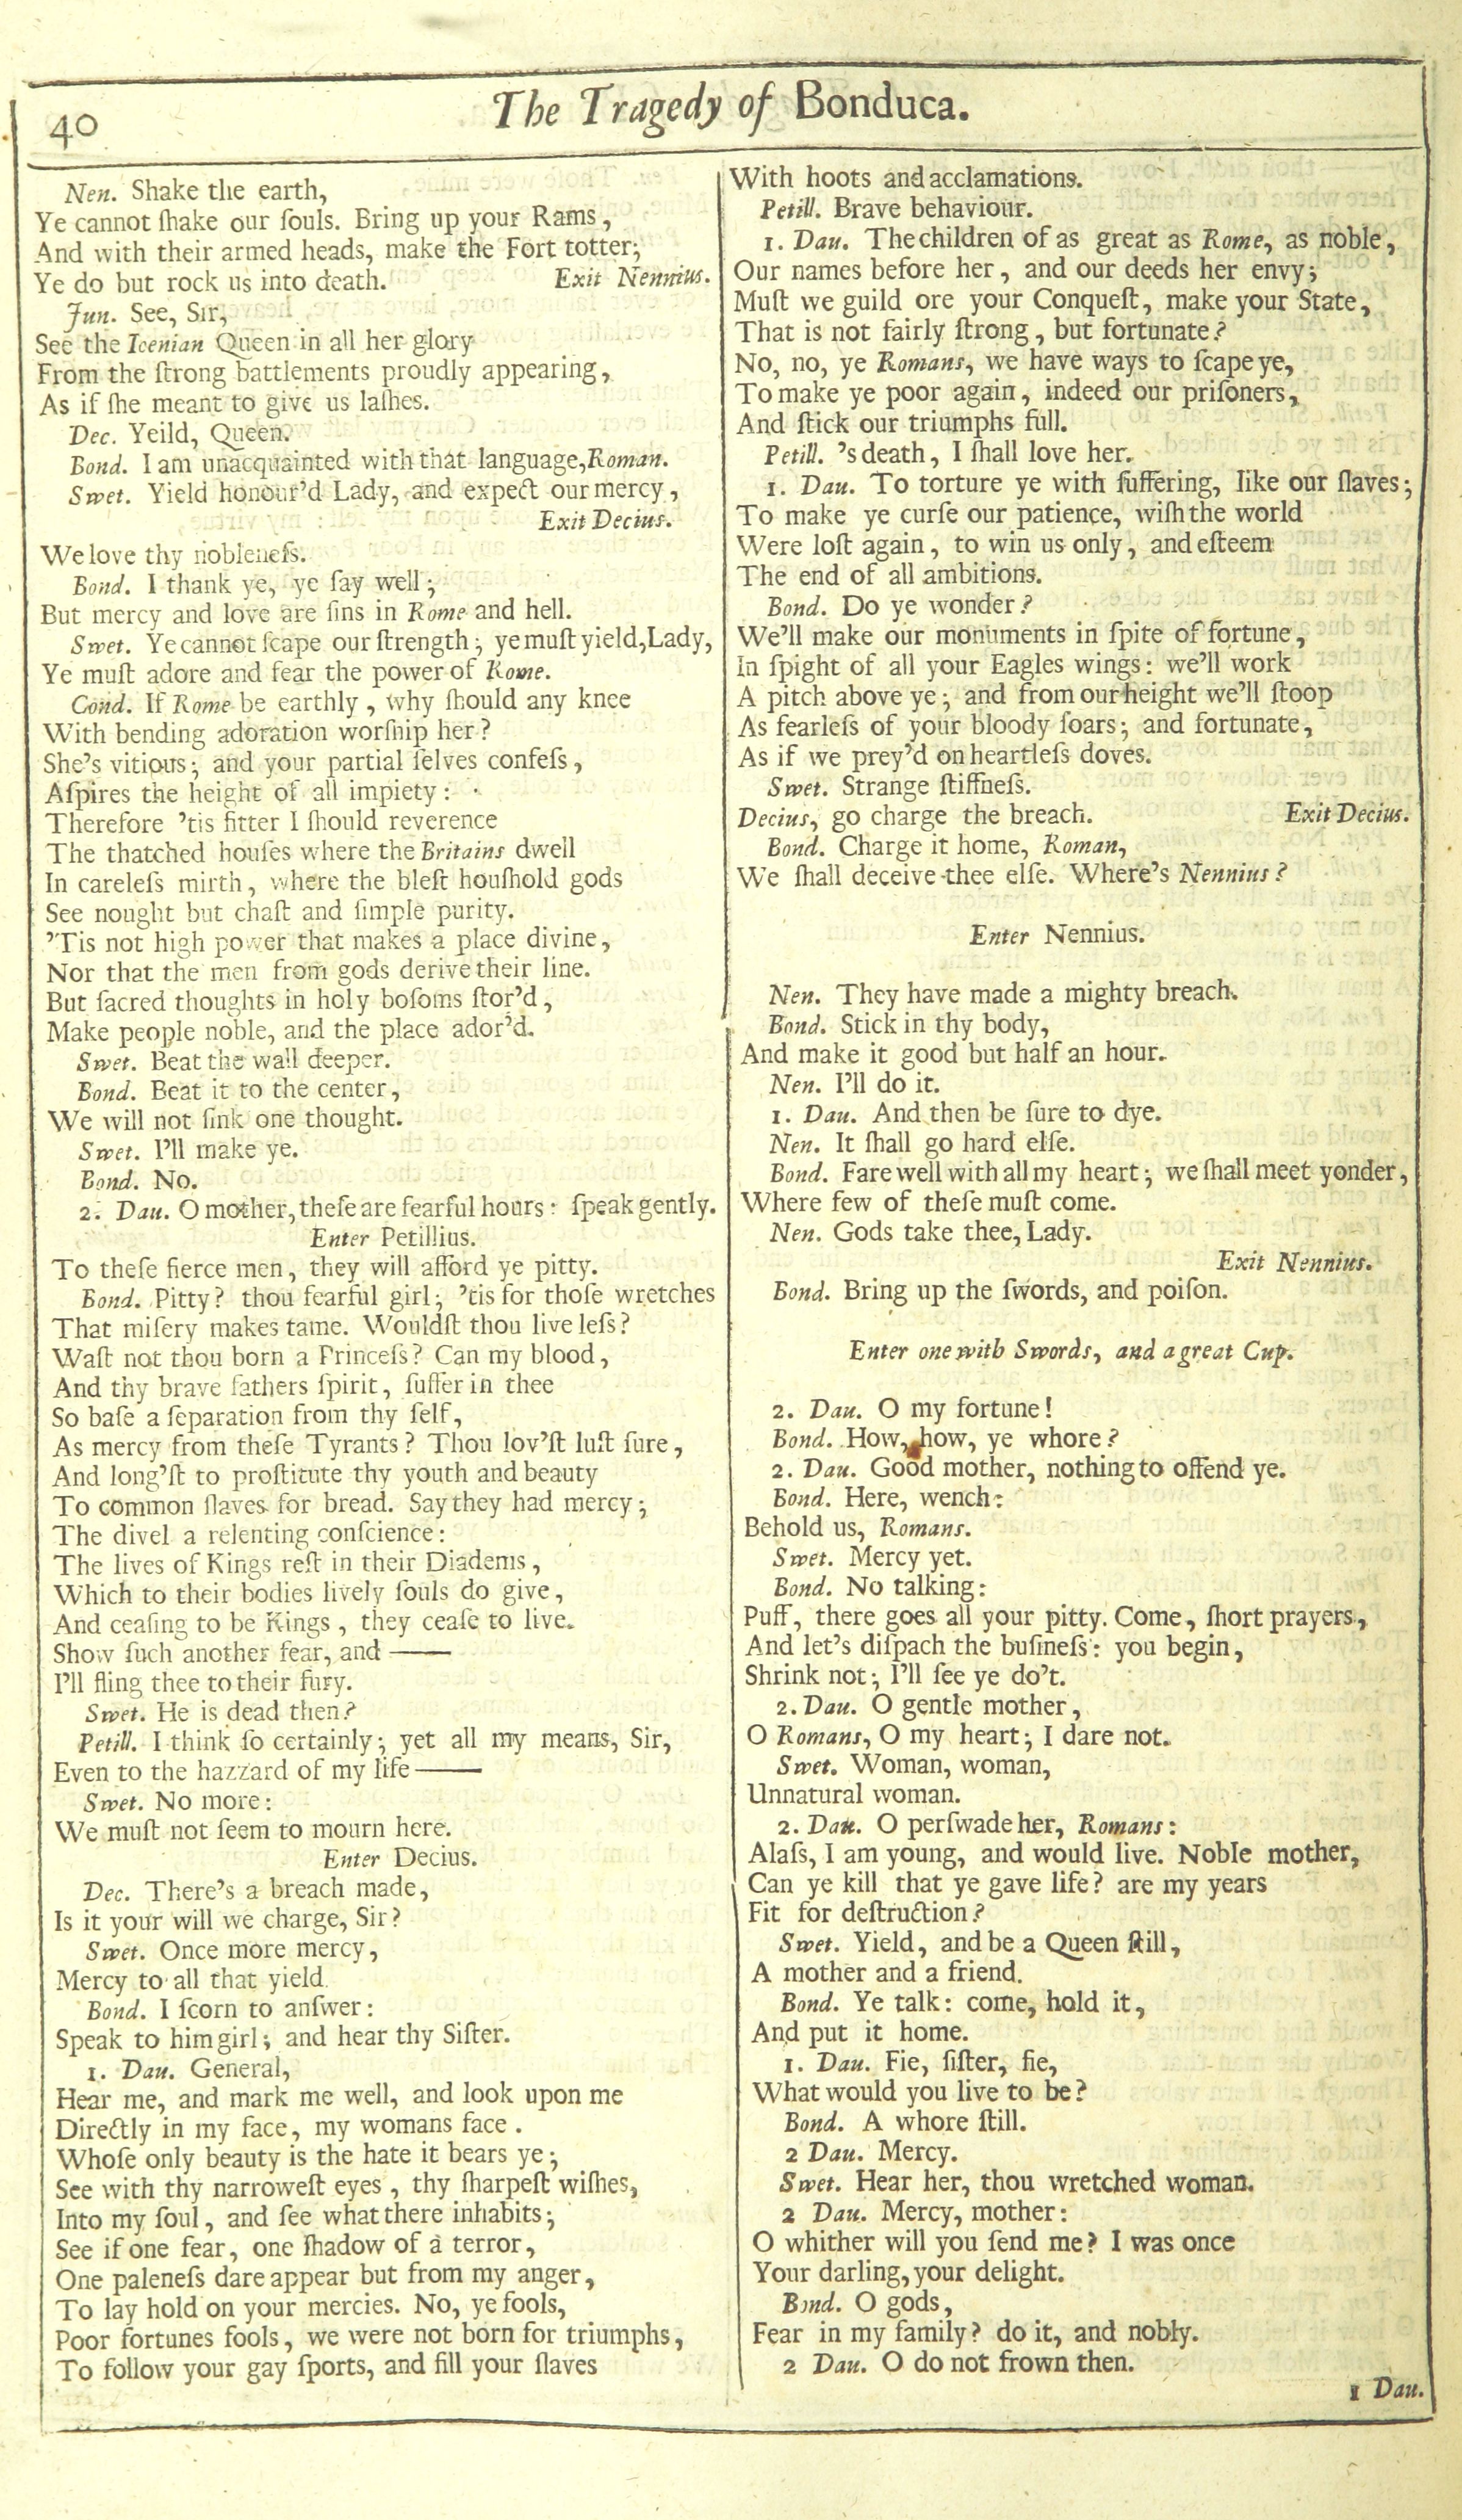 40
The Tragedy of Bonduca.
Nen. Shake the earth,
Ye cannot ſhake our ſouls. Bring up your Rams,
And with their armed heads, make the Fort totter;
Ye do but rock us into death. Exit Nennius.
Jun. See, Sir,
See the Icenian Queen in all her glory
From the ſtrong battlements proudly appearing,
As if ſhe meant to give us laſhes.
Dec. Yeild, Queen.
Bond. I am unacquainted with that language, Roman.
Swet. Yield honour'd Lady, and expect our mercy,
Exit Decius.
We love thy nobleneſs.
Bond. I thank ye, ye ſay well;
But mercy and love are ſins in Rome and hell.
Swet. Ye cannot ſcape our ſtrength; ye muſt yield, Lady,
Ye muſt adore and fear the power of Rome.
Cond. If Rome be earthly, why ſhould any knee
With bending adoration worſhip her?
She's vitious; and your partial ſelves confeſs,
Aſpires the height of all impiety:
Therefore 'tis fitter I ſhould reverence
The thatched houſes where the Britains dwell
In careleſs mirth, where the bleſt houſhold gods
See nought but chaſt and ſimple purity.
'Tis not high power that makes a place divine,
Nor that the men from gods derive their line.
But ſacred thoughts in holy boſoms ſtor'd,
Make people noble, and the place ador'd.
Swet. Beat the wall deeper.
Bond. Beat it to the center,
We will not ſink one thought.
Swet. I'll make ye.
Bond. No.
2. Dau. O mother, theſe are fearful hours: ſpeak gently.
Enter Petillius.
To theſe fierce men, they will afford ye pitty.
Bond. Pitty? thou fearful girl; 'tis for thoſe wretches
That miſery makes tame. Wouldſt thou live leſs?
Waſt not thou born a Princeſs? Can my blood,
And thy brave fathers ſpirit, ſuffer in thee
So baſe a ſeparation from thy ſelf,
As mercy from theſe Tyrants? Thou lov'ſt luſt ſure,
And long'ſt to proſtitute thy youth and beauty
To common ſlaves for bread. Say they had mercy;
The divel a relenting conſcience:
The lives of Kings reſt in their Diadems,
Which to their bodies lively ſouls do give,
And ceaſing to be Kings, they ceaſe to live.
Show ſuch another fear, and ——
I'll fling thee to their fury.
Swet. He is dead then?
Petill. I think ſo certainly; yet all my means, Sir,
Even to the hazzard of my life ——
Swet. No more:
We muſt not ſeem to mourn here.
Enter Decius.
Dec. There's a breach made,
Is it your will we charge, Sir?
Swet. Once more mercy,
Mercy to all that yield.
Bond. I ſcorn to anſwer:
Speak to him girl; and hear thy Siſter.
1. Dau. General,
Hear me, and mark me well, and look upon me
Directly in my face, my womans face.
Whoſe only beauty is the hate it bears ye;
See with thy narroweſt eyes, thy ſharpeſt wiſhes,
Into my ſoul, and ſee what there inhabits;
See if one fear, one ſhadow of a terror,
One paleneſs dare appear but from my anger,
To lay hold on your mercies. No, ye fools,
Poor fortunes fools, we were not born for triumphs,
To follow your gay ſports, and fill your ſlaves
With hoots and acclamations.
Petill. Brave behaviour.
1. Dau. The children of as great as Rome, as noble,
Our names before her, and our deeds her envy;
Muſt we guild ore your Conqueſt, make your State,
That is not fairly ſtrong, but fortunate?
No, no, ye Romans, we have ways to ſcape ye,
To make ye poor again, indeed our priſoners,
And ſtick our triumphs full.
Petill. 'sdeath, I ſhall love her.
1. Dau. To torture ye with ſuffering, like our ſlaves;
To make ye curſe our patience, wiſh the world
Were loſt again, to win us only, and eſteem
The end of all ambitions.
Bond. Do ye wonder?
We'll make our monuments in ſpite of fortune,
In ſpight of all your Eagles wings: we'll work
A pitch above ye; and from our height we'll ſtoop
As fearleſs of your bloody ſoars; and fortunate,
As if we prey'd on heartleſs doves.
Swet. Strange ſtiffneſs.
Decius, go charge the breach. Exit Decius.
Bond. Charge it home, Roman,
We ſhall deceive thee elſe. Where's Nennius?
Enter Nennius.
Nen. They have made a mighty breach.
Bond. Stick in thy body,
And make it good but half an hour.
Nen. I'll do it.
1. Dau. And then be ſure to dye.
Nen. It ſhall go hard elſe.
Bond. Farewell with all my heart; we ſhall meet yonder,
Where few of theſe muſt come.
Nen. Gods take thee, Lady.
Exit Nennius.
Bond. Bring up the ſwords, and poiſon.
Enter one with Swords, and a great Cup.
2. Dau. O my fortune!
Bond. How, how, ye whore?
2. Dau. Good mother, nothing to offend ye.
Bond. Here, wench:
Behold us, Romans.
Swet. Mercy yet.
Bond. No talking:
Puff, there goes all your pitty. Come, ſhort prayers,
And let's diſpach the buſineſs: you begin,
Shrink not; I'll ſee ye do't.
2. Dau. O gentle mother,
O Romans, O my heart; I dare not.
Swet. Woman, woman,
Unnatural woman.
2. Dau. O perſwade her, Romans:
Alaſs, I am young, and would live. Noble mother,
Can ye kill that ye gave life? are my years
Fit for deſtruction?
Swet. Yield, and be a Queen ſtill,
A mother and a friend.
Bond. Ye talk: come, hold it,
And put it home.
1. Dau. Fie, ſiſter, fie,
What would you live to be?
Bond. A whore ſtill.
2 Dau. Mercy.
Swet. Hear her, thou wretched woman.
2 Dau. Mercy, mother:
O whither will you ſend me? I was once
Your darling, your delight.
Bond. O gods,
Fear in my family? do it, and nobly.
2 Dau. O do not frown then.
1 Dau.